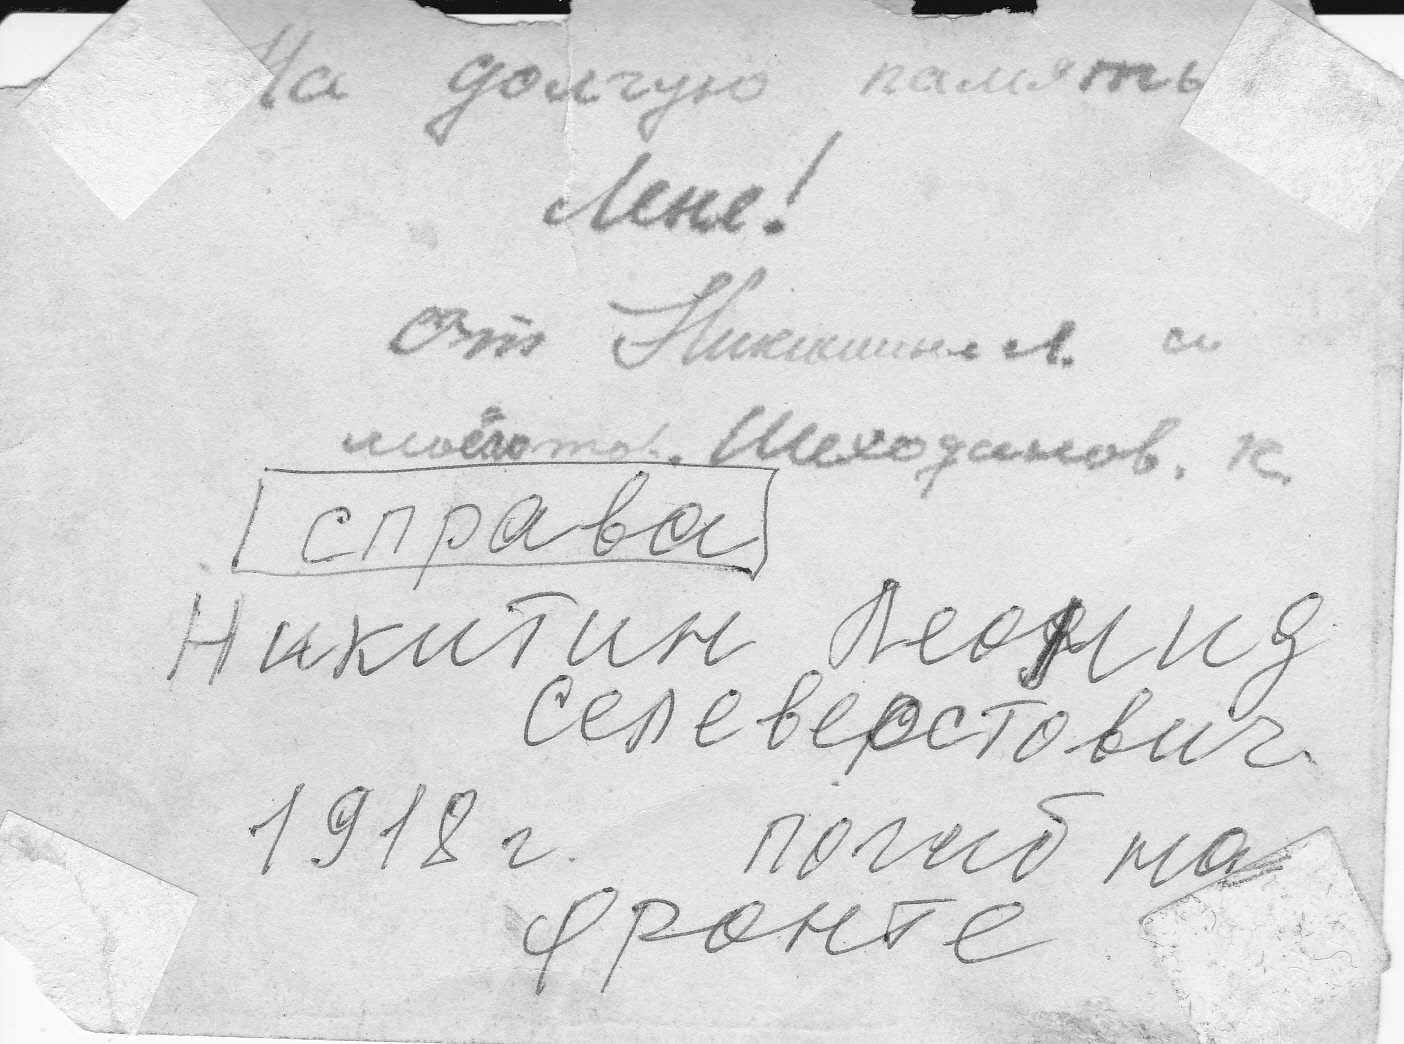 На долгую память
Лене!
от Никишина Л. и
моего тов. Шеходанов. К.
справа
Никитин Леонид
Селеверстович
1918 г. погиб на
фронте